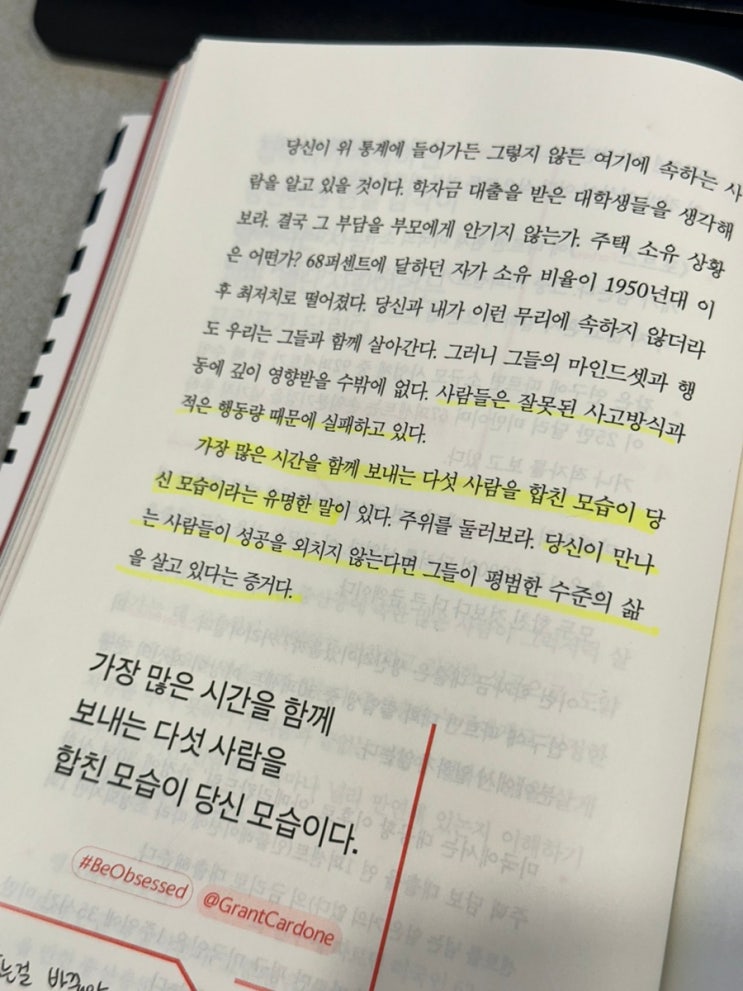 당신이 위 통계에 들어가든 그렇지 않든 여기에 속하는 사
람을 알고 있을 것이다. 학자금 대출을 받은 대학생들을 생각해
보라. 결국 그 부담을 부모에게 안기지 않는가. 주택 소유 상황
은 어떤가? 68퍼센트에 달하던 자가 소유 비율이 1950년대 이
후 최저치로 떨어졌다. 당신과 내가 이런 무리에 속하지 않더라
도 우리는 그들과 함께 살아간다. 그러니 그들의 마인드셋과 행
동에 깊이 영향받을 수밖에 없다. 사람들은 잘못된 사고방식과
적은 행동량 때문에 실패하고 있다.
가장 많은 시간을 함께 보내는 다섯 사람을 합친 모습이 당
신 모습이라는 유명한 말이 있다. 주위를 둘러보라. 당신이 만나
는 사람들이 성공을 외치지 않는다면 그들이 평범한 수준의 삶
을 살고 있다는 증거다.
가장 많은 시간을 함께
보내는 다섯 사람을
합친 모습이 당신 모습이다.
#BeObsessed @GrantCardone